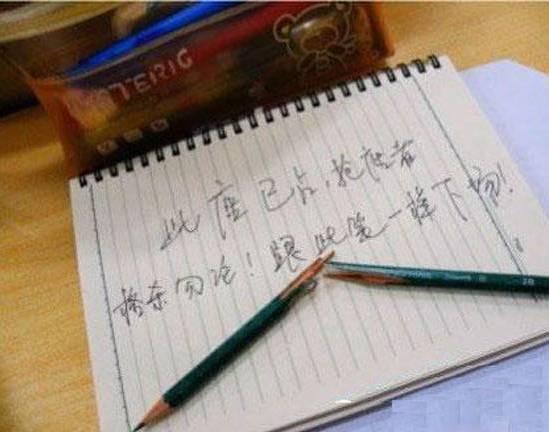 MATERIG
此座已占,抢座者
格杀勿论!跟此笔一样下场!
2B